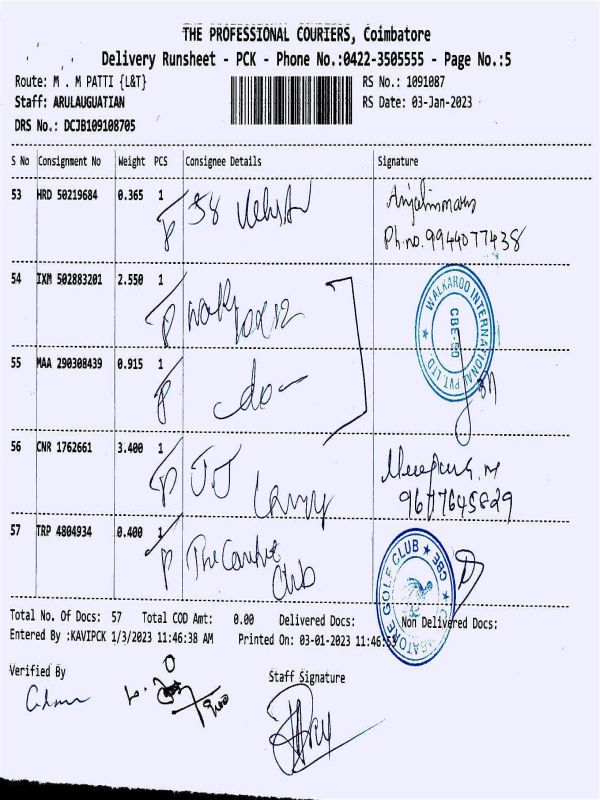 THE PROFESSIONAL COURIERS, Coimbatore
Delivery Runsheet - PCK - Phone No.:0422-3505555 - Page No.:5
Route: M . M PATTI {L&T}
RS No.: 1091087
Staff: ARULAUGUATIAN
RS Date: 03-Jan-2023
DRS No.: DCJB109108705
S No Consignment No Weight PCS Consignee Details Signature
53 HRD 50219684 0.365 1
Ph.no. 9944077438
54 IXM 502883201 2.550 1
WALKAROO INTERNATIONAL PVT. LTD.
CBE
55 MAA 290308439 0.915 1
do
56 CNR 1762661 3.400 1
57 TRP 4804934 0.400 1
The
Club
GOLF CLUB ★ CBE
Total No. Of Docs: 57 Total COD Amt: 0.00 Delivered Docs: Non Delivered Docs:
Entered By :KAVIPCK 1/3/2023 11:46:38 AM Printed On: 03-01-2023 11:46:
Verified By
Staff Signature